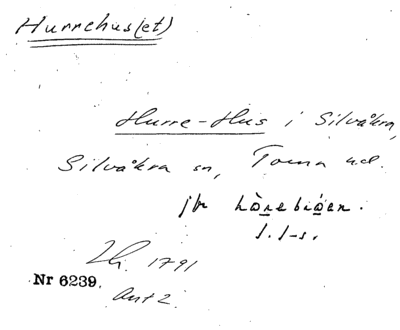 Hurrehus(et)
Hurre-Hus i Silvåkra,
Silvåkra sn, Torna hd.
jfr
s. l-s.
1791
Nr 6239.
Ant 2.